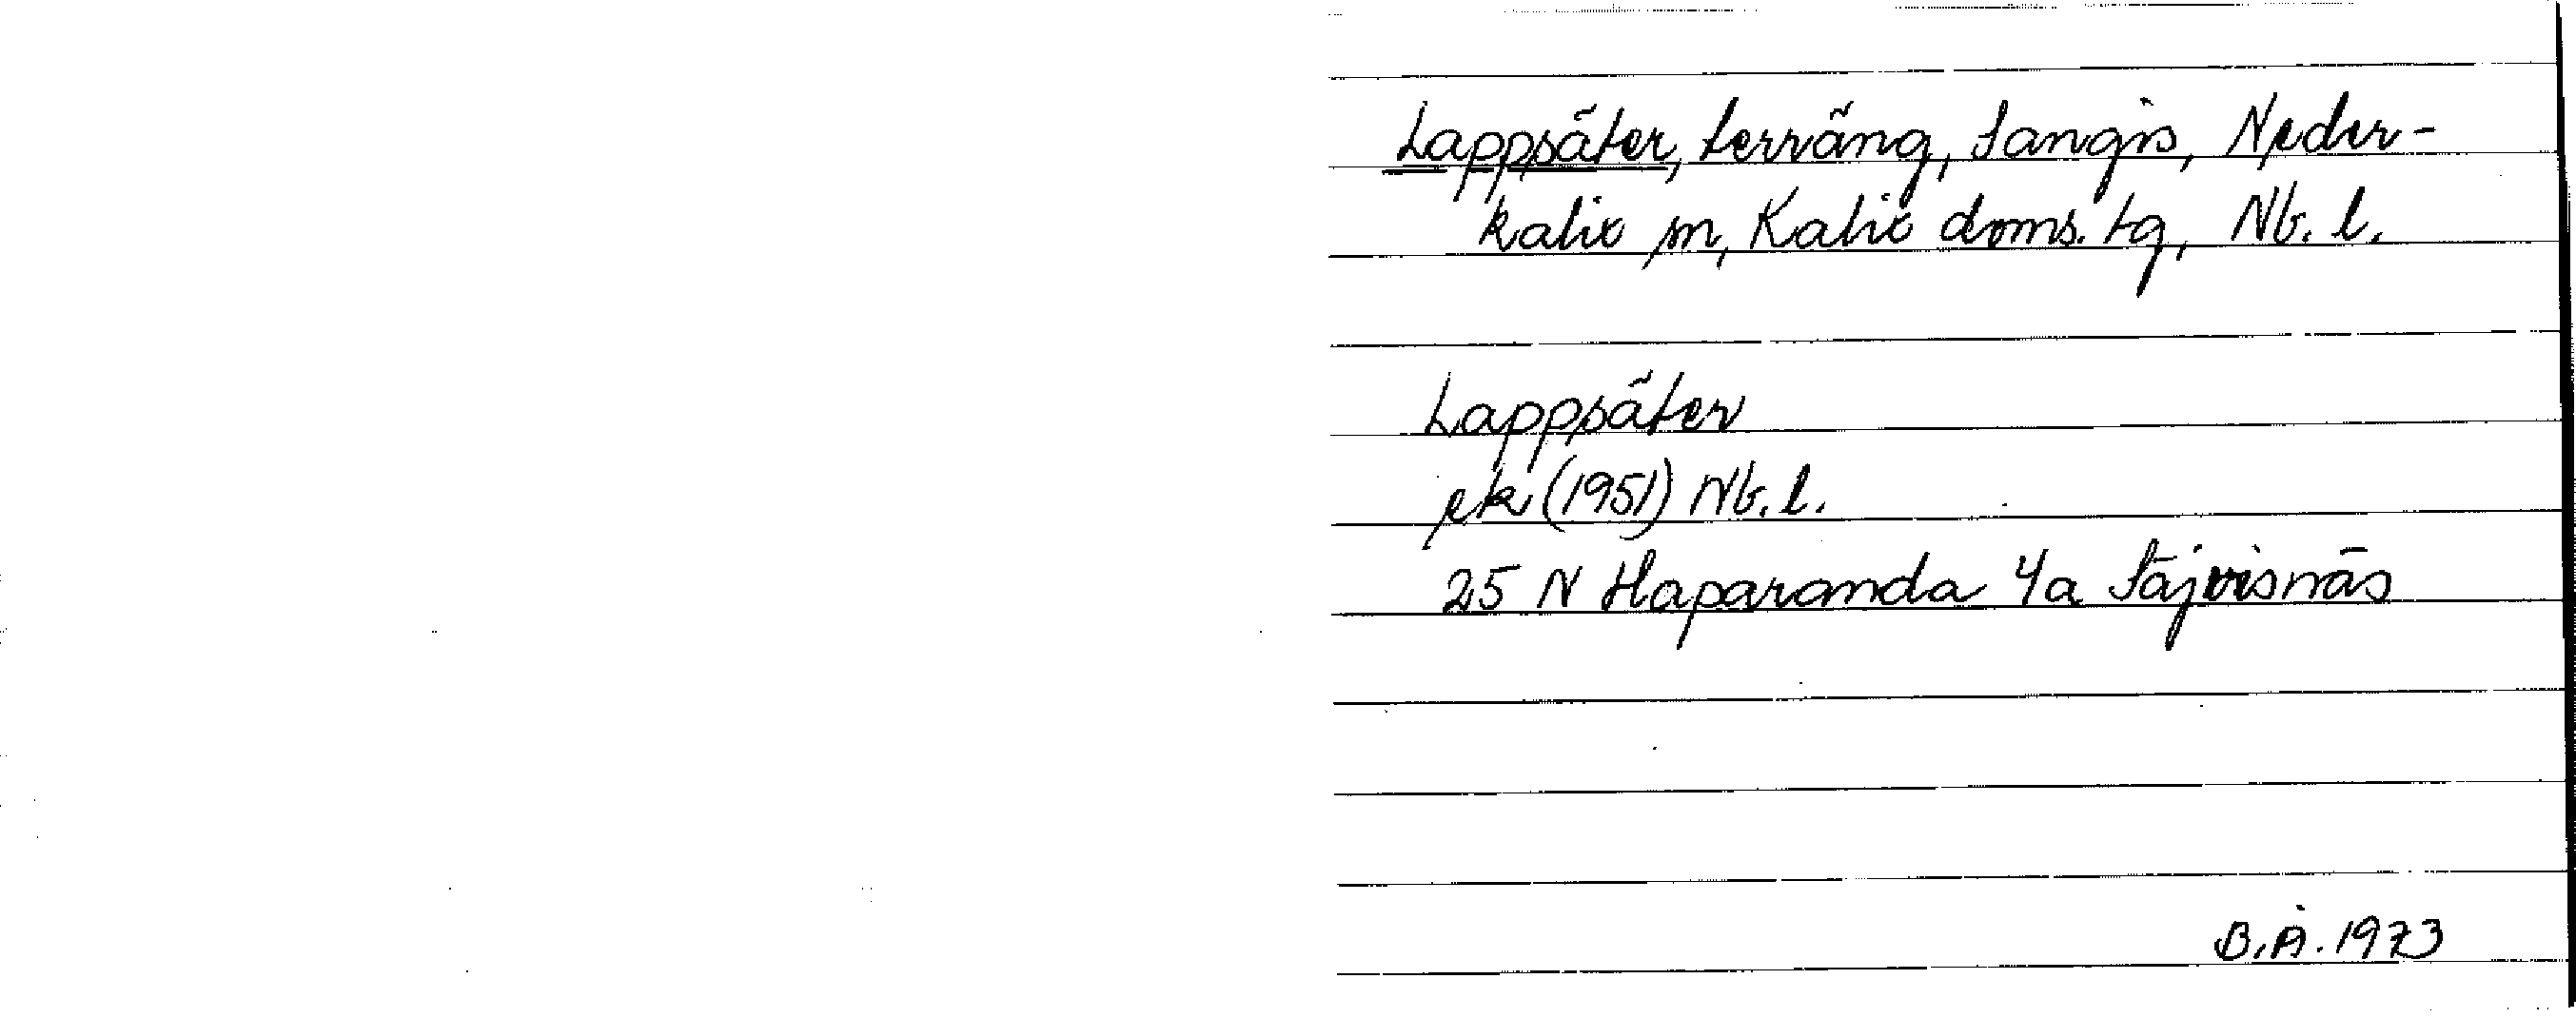 Lappsäter, terräng, Sangis, Neder-
kalix sn, Kalix doms. tg, Nb. l.
Lappsäter
ek (1951) Nb. l.
25 N Haparanda 4a Säjvisnäs
B.Å. 1973